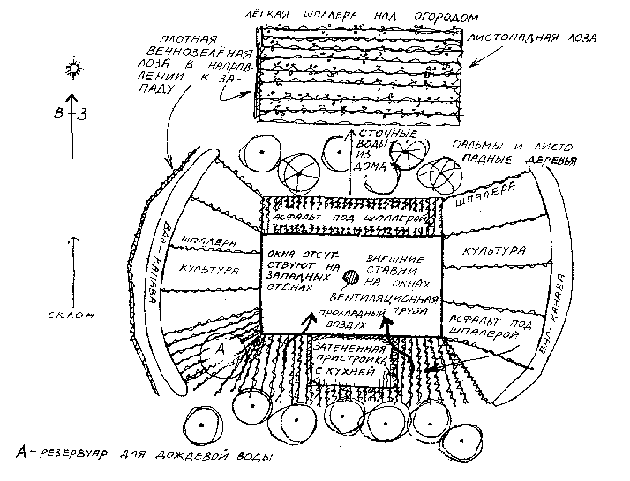 ЛЁГКАЯ ШПАЛЕРА НАД ОГОРОДОМ
ПЛОТНАЯ
ВЕЧНОЗЕЛЁНАЯ
ЛОЗА В НАПРАВ-
ЛЕНИИ К ЗА-
ПАДУ
ЛИСТОПАДНАЯ ЛОЗА
В-З
СТОЧНЫЕ
ВОДЫ
ИЗ
ДОМА
ПАЛЬМЫ И ЛИСТО
ПАДНЫЕ ДЕРЕВЬЯ
АСФАЛЬТ ПОД ШПАЛЕРОЙ
ШПАЛЕРА
ВАЛ-КАНАВА
ШПАЛЕРА
КУЛЬТУРА
ОКНА ОТСУТ-
СТВУЮТ НА
ЗАПАДНЫХ
СТЕНАХ
ВНЕШНИЕ
СТАВНИ
НА ОКНАХ
КУЛЬТУРА
ВЕНТИЛЯЦИОННАЯ
ТРУБА
ПРОХЛАДНЫЙ
ВОЗДУХ
СКЛОН
АСФАЛЬТ ПОД
ШПАЛЕРОЙ
ВАЛ-КАНАВА
А
ЗАТЕНЕННАЯ
ПРИСТРОЙКА
С КУХНЕЙ
А-РЕЗЕРВУАР ДЛЯ ДОЖДЕВОЙ ВОДЫ